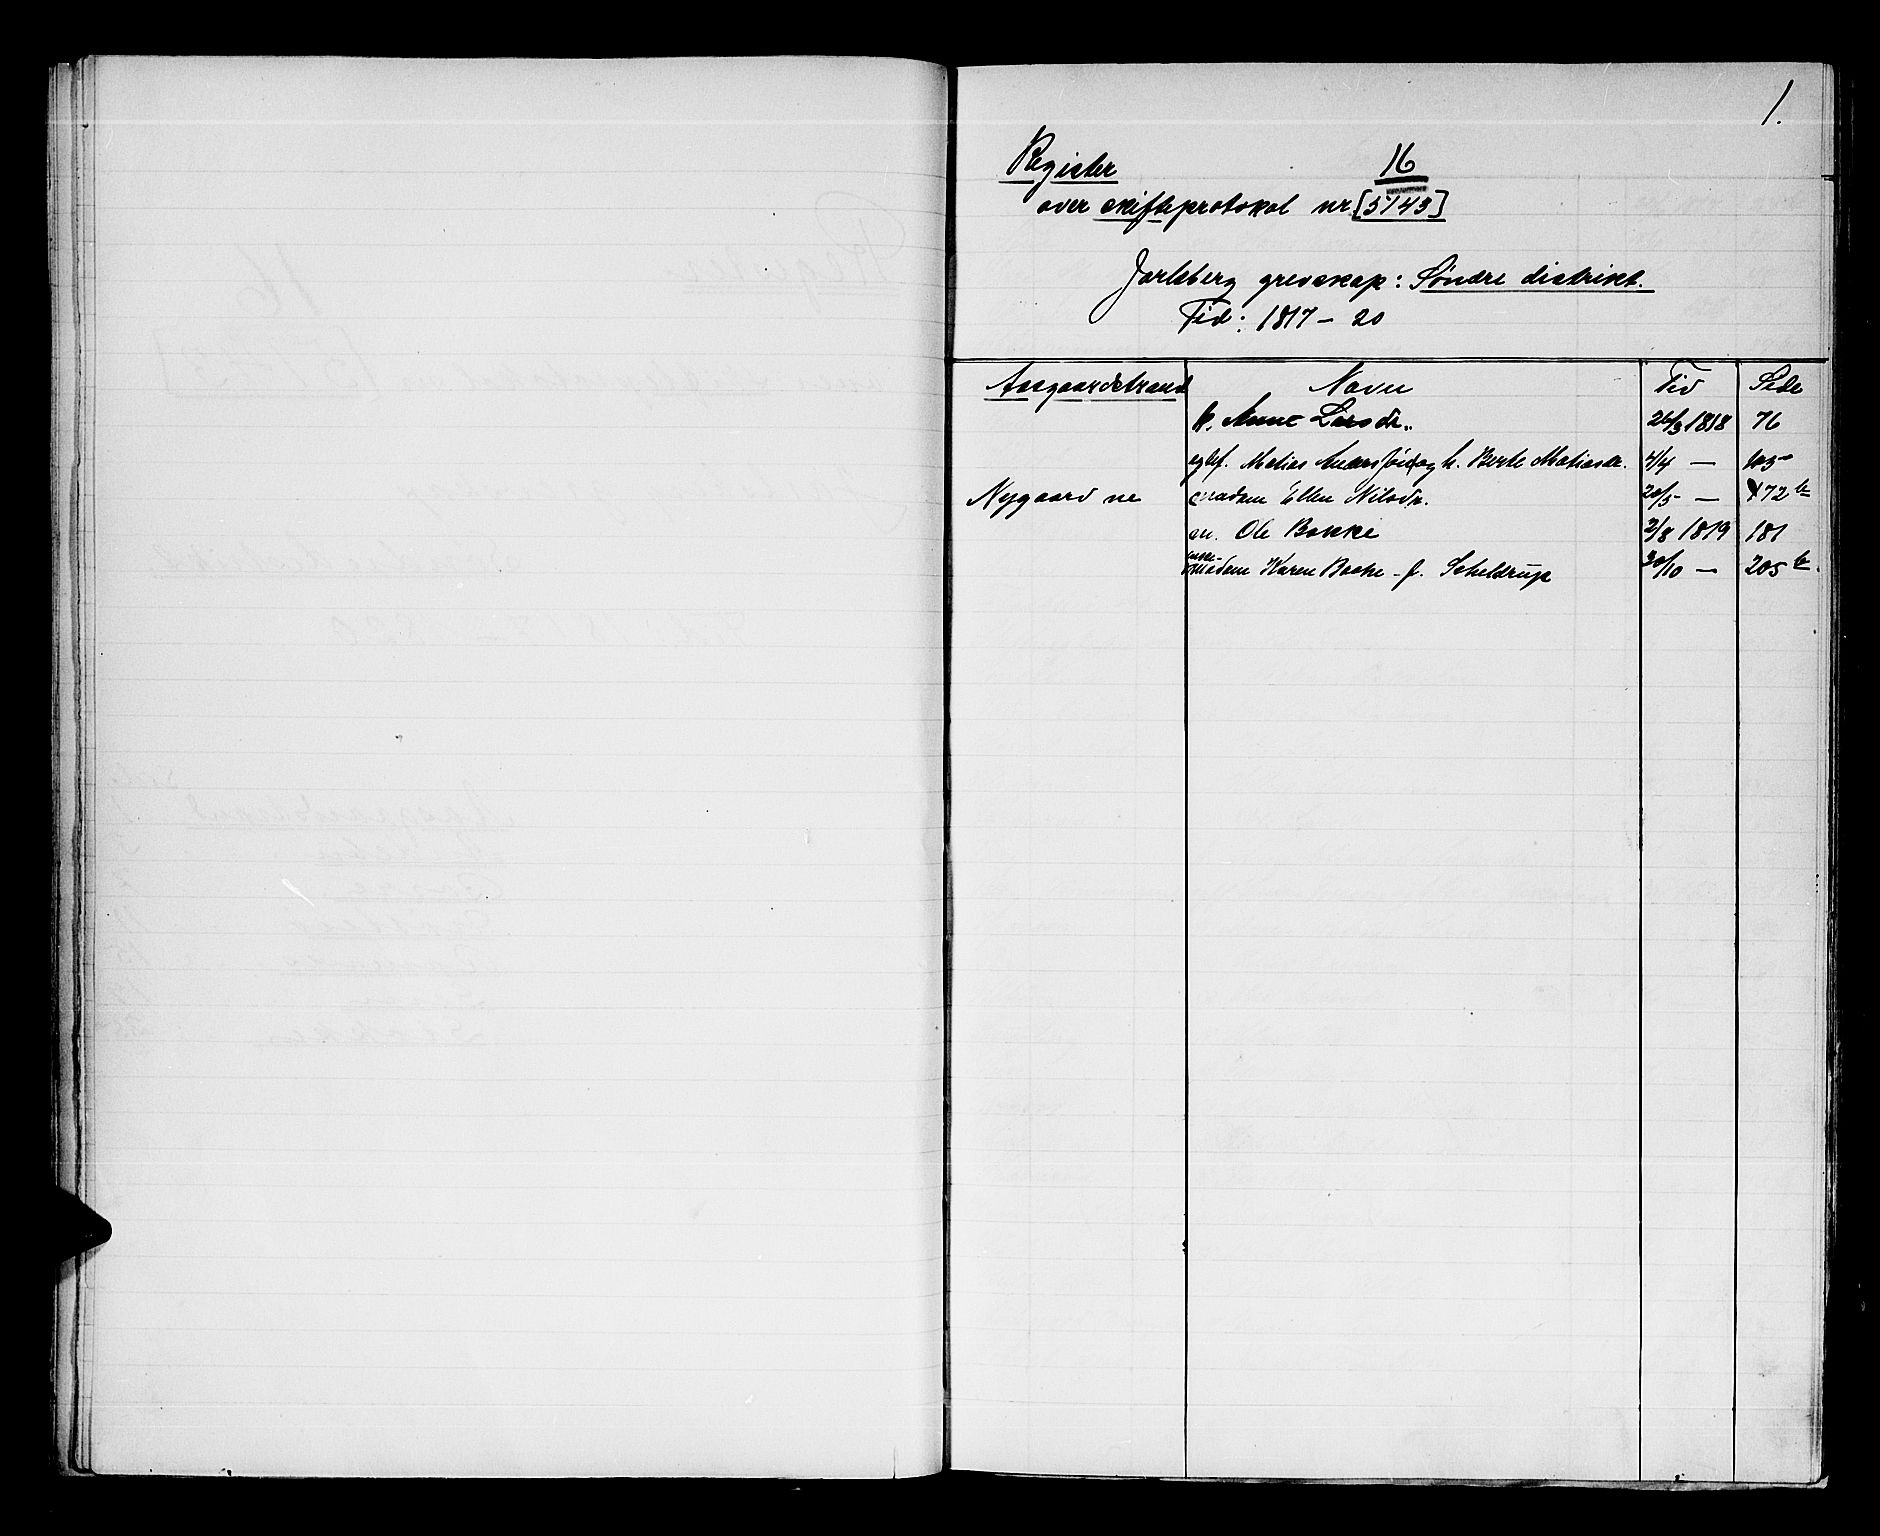 1.
Register 16
over skifteprotokol nr [5743]
Jarlsberg grevskap: Søndre distrikt.
Tid: 1817 – 20
Aasgaardstrand Navn Tid Side
k. Anne Larsdr. 26/3 1818 76
Matias Anders og k. Berte Matiasdr. 4/4 — 105
Nygaard ne madam Ellen Nilsdr. 20/5 — 72 b
m. Ole Bakke 2/8 1819 181
enke-
madam Karen Bache - f. Scheldrup 30/10 — 205 b.